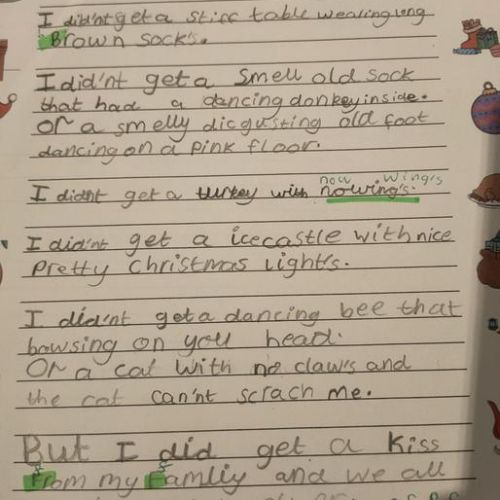 I did'nt get a stiff table wearing long
Brown sock's.
I did'nt get a smell old sock
that had a dancing donkey inside.
Or a smelly disgusting old foot
dancing on a pink floor.
now wing's
I didn't get a turkey with nowing's.
I did'nt get a icecastle with nice
pretty christmas light's.
I did'nt get a dancing bee that
bowsing on you head.
Or a cat with no claw's and
the cat can'nt scrach me.
But I did get a kiss
From my Famliy and we all